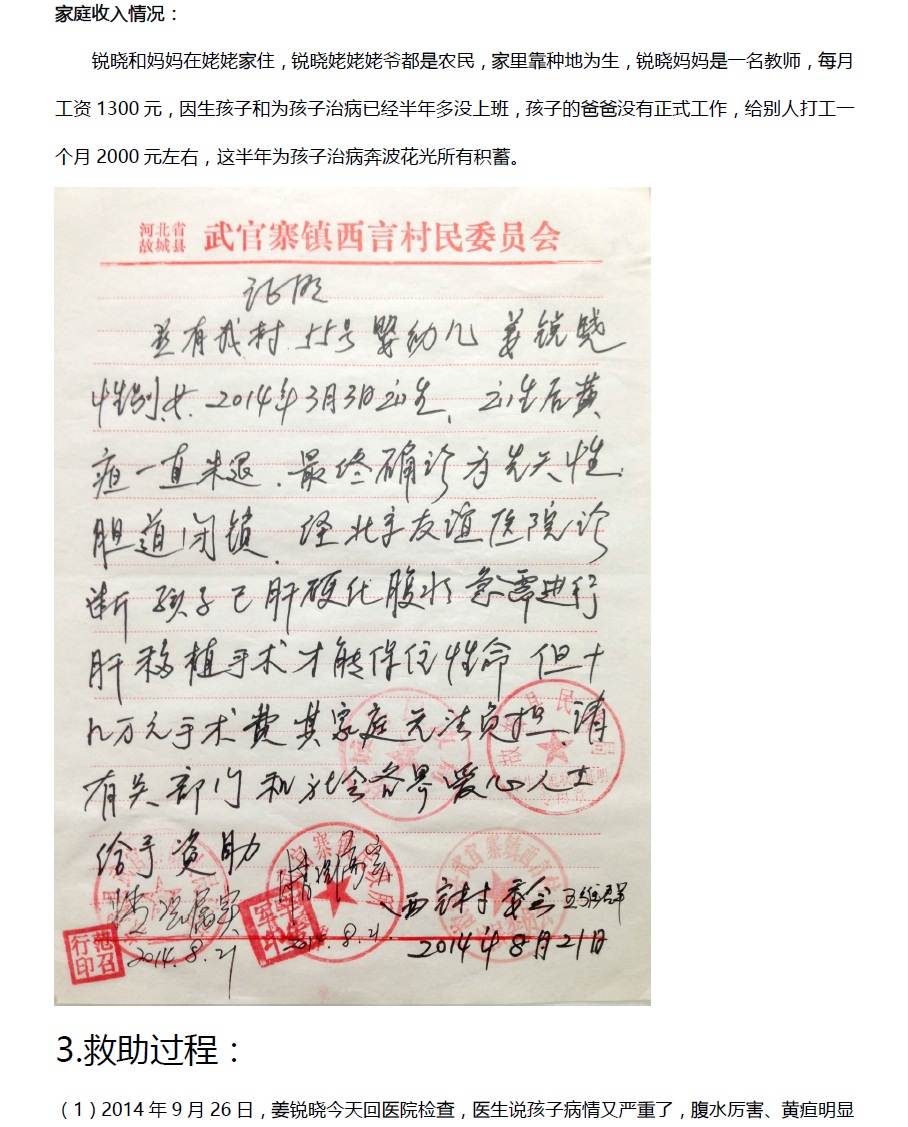 家庭收入情况：
锐晓和妈妈在姥姥家住，锐晓姥姥姥爷都是农民，家里靠种地为生，锐晓妈妈是一名教师，每月
工资1300元，因生孩子和为孩子治病已经半年多没上班，孩子的爸爸没有正式工作，给别人打工一
个月2000元左右，这半年为孩子治病奔波花光所有积蓄。
河北省
故城县 武官寨镇西言村民委员会
证明
兹有我村55号婴幼儿姜锐晓
性别女.2014年3月3日出生、出生后黄
疸一直未退.最终确诊为先天性
胆道闭锁.经北京友谊医院诊
断孩子已肝硬化腹水急需进行
肝移植手术才能保住性命但十
几万元手术费其家庭无法负担.请
有关部门和社会各界爱心人士
给予资助
情况属实
2014.8.21
情况属实
2014.8.21
西言村委会
2014年8月21日
3.救助过程：
（1）2014年9月26日，姜锐晓今天回医院检查，医生说孩子病情又严重了，腹水厉害、黄疸明显